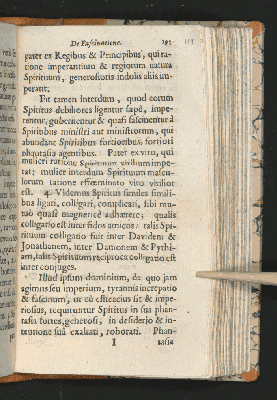 De Fascinatione. 193
pater ex Regibus & Principibus, qui ra-
tione imperantium & regiorum natura
Spirituum, generosioris indolis aliis im-
perant;
Fit tamen interdum, quod eorum
Spiritus debiliores ligentur sæpè, impe-
rentur, gubernentur & quasi fascinentur à
Spiritibus ministri aut ministrorum, qui
abundant Spiritibus fortioribus fortiori
phantasia agentibus. Pater ex viro, qui
mulieri ratione Spirituum virilium impe-
rat; mulier interdum Spirituum mascu-
lorum ratione effœminato viro virilior
est. 4. Videmus Spiritus similes simili-
bus ligati, colligari, complicari, sibi mu-
tuò quasi magneticè adhærere; qualis
colligatio est inter fidos amicos: talis Spi-
rituum colligatio fuit inter Davidem &
Jonathanem, inter Damonem & Pythi-
am, talis Spirituum reciproca colligatio est
inter conjuges.
Illud ipsum dominium, de quo jam
agimus seu imperium, tyrannis increpatio
& fascinum, ut eò efficacius sit & impe-
riosius, requiruntur Spiritus in sua phan-
tasia fortes, generosi, in desiderio & in-
tentione suâ exaltati, roborati. Phan-
I tasia